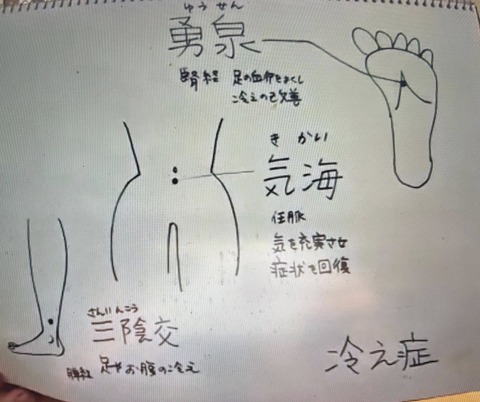 ゆう せん
勇泉
腎経 足の血行をよくし
冷えの改善
き かい
気海
任脈
気を充実させ
症状を回復
さんいんこう
三陰交
脾経 足やお腹の冷え
冷え症